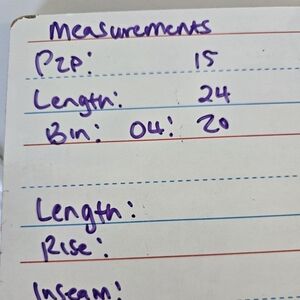 Measurements
P2P: 15
Length: 24
Bin: 04: 20
Length:
Rise:
Inseam: